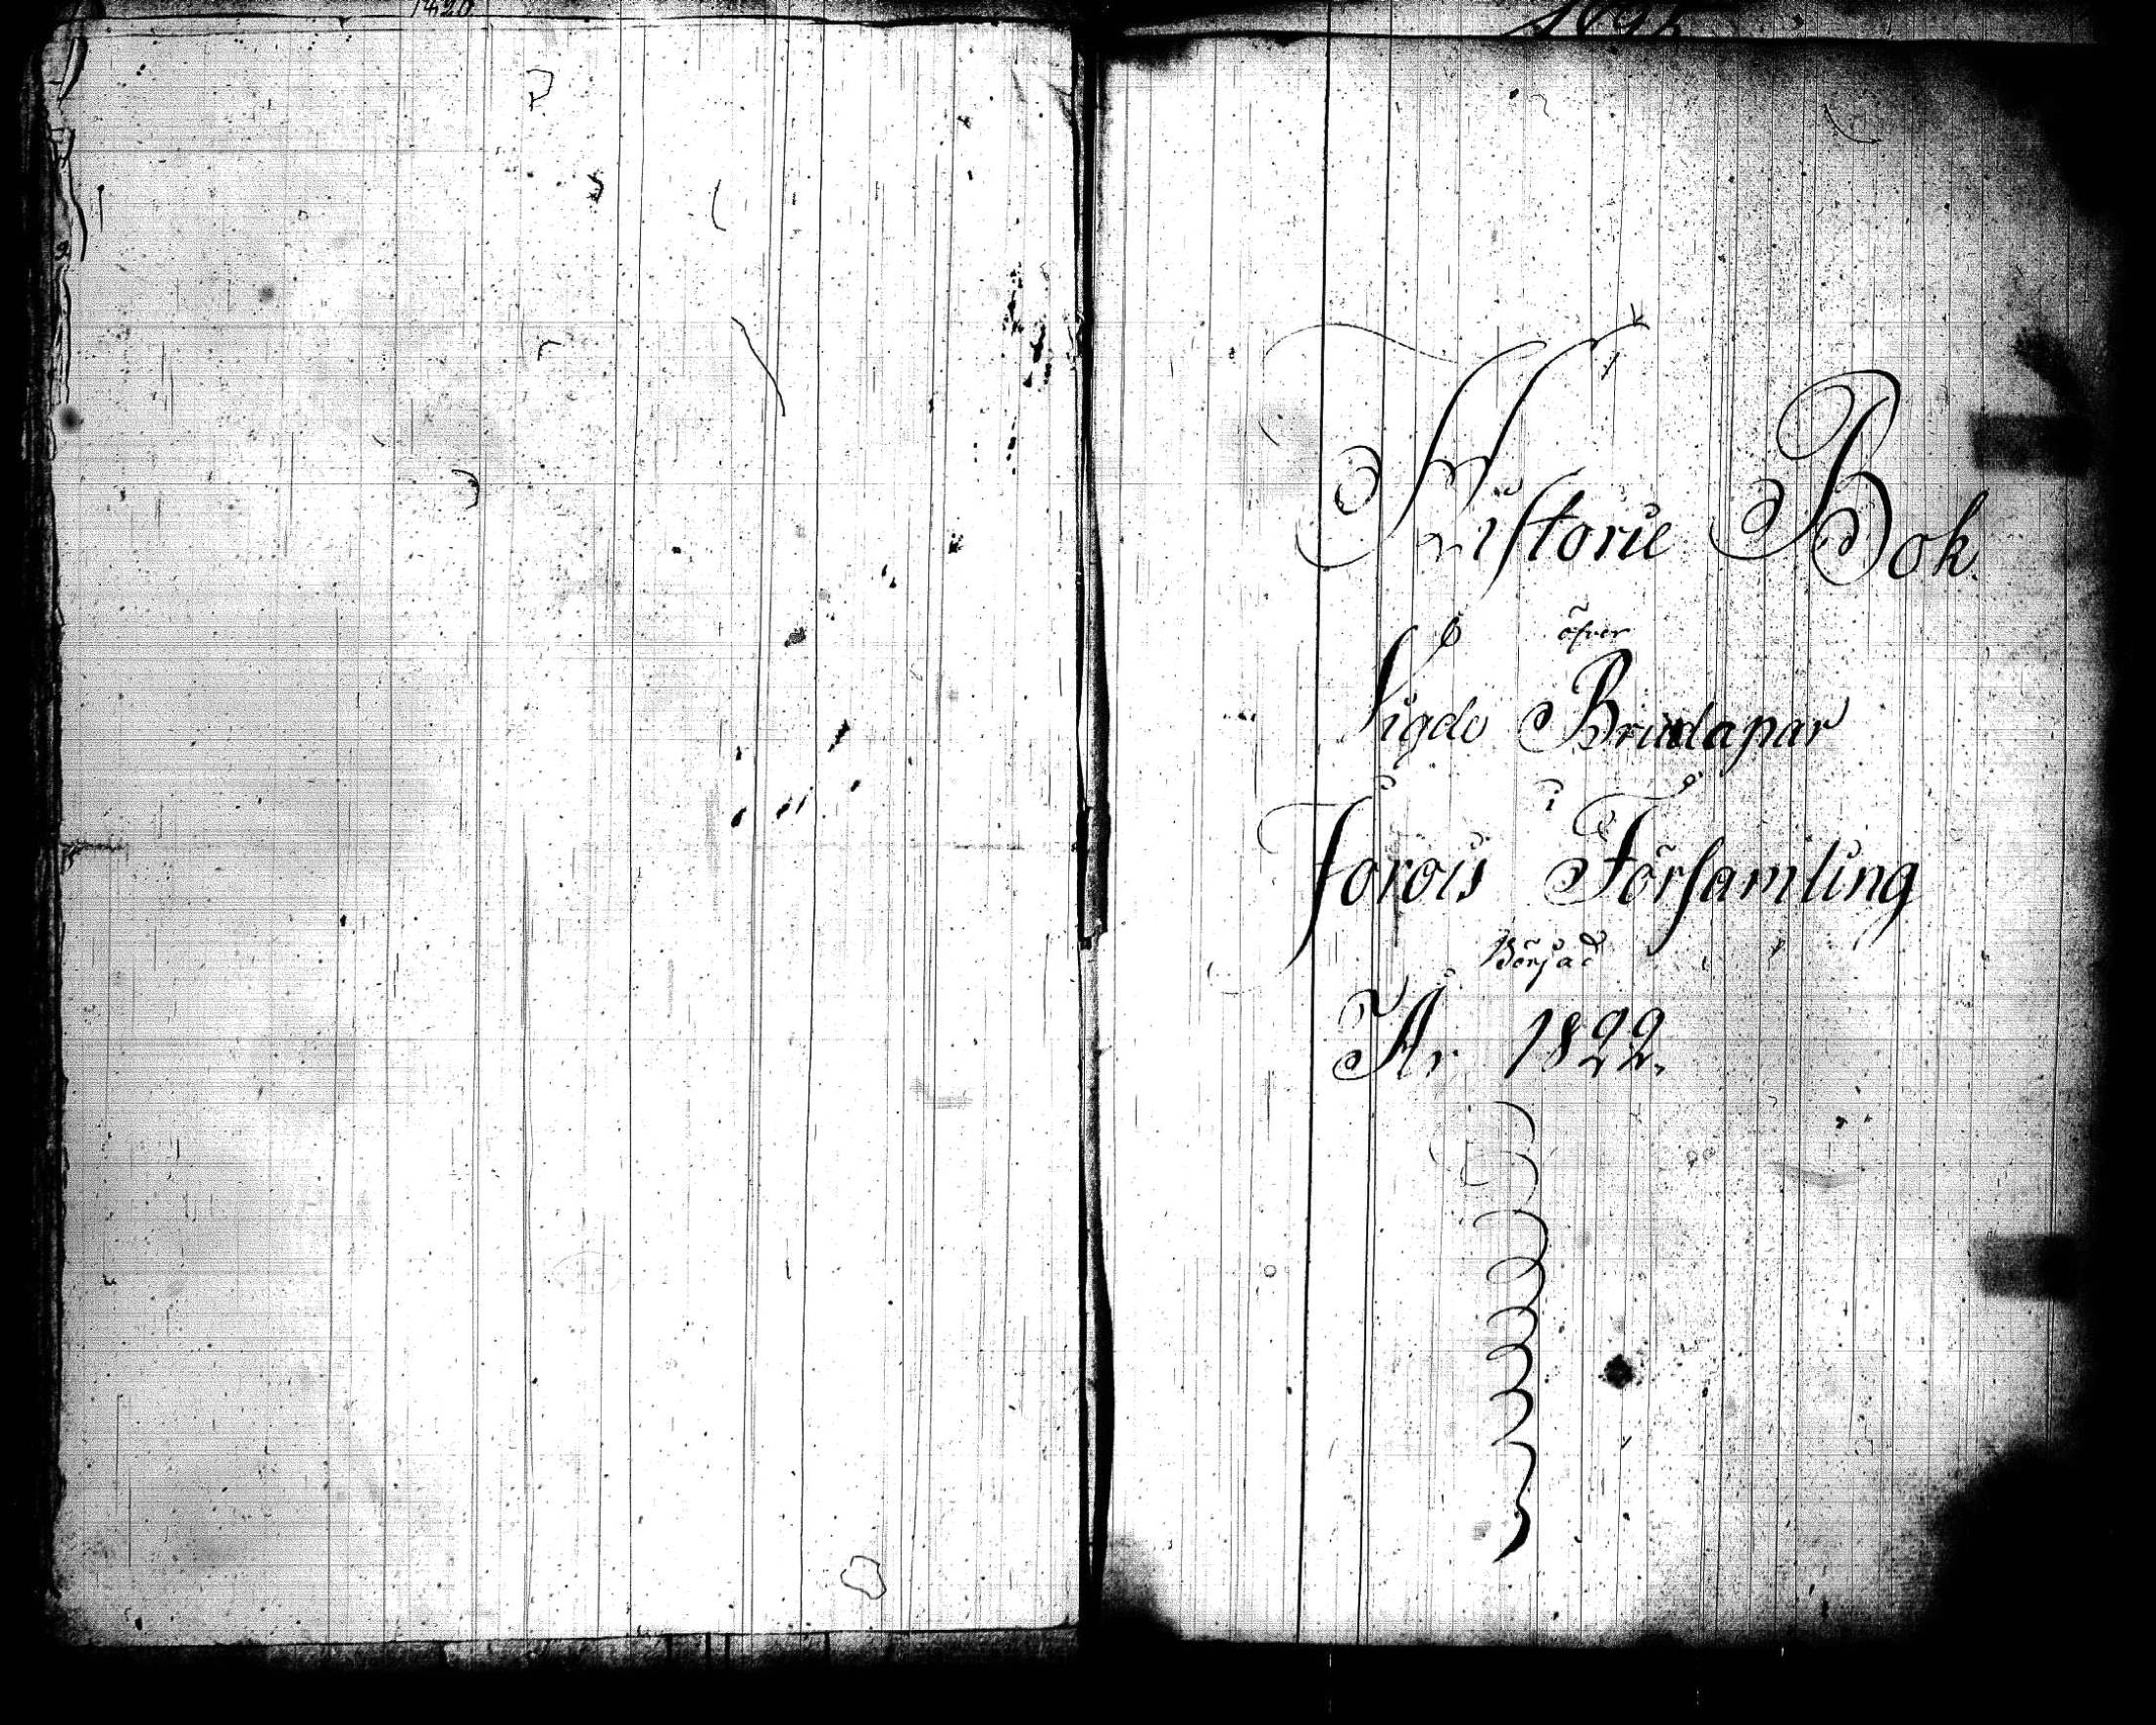 Historie Bok
öfver
Vigde Brudapar
i
Jorois Församling
Börjad
År 1822.